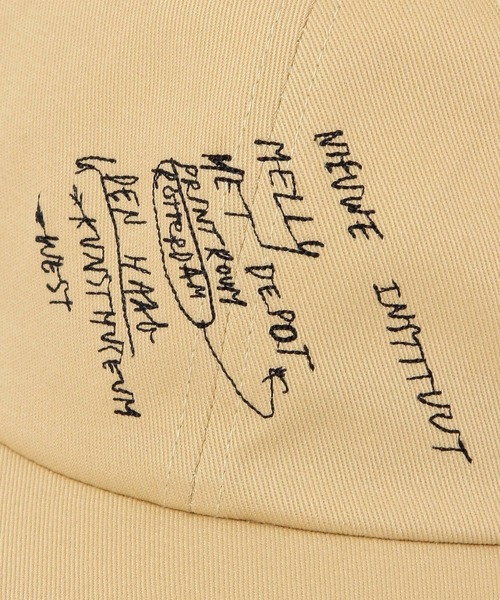 NIEUWE INSTITUUT
MELLY
HET DEPOT
PRINT ROOM
ROTTERDAM
DEN HAAG
↳→ KUNSTMUSEUM
→ WEST